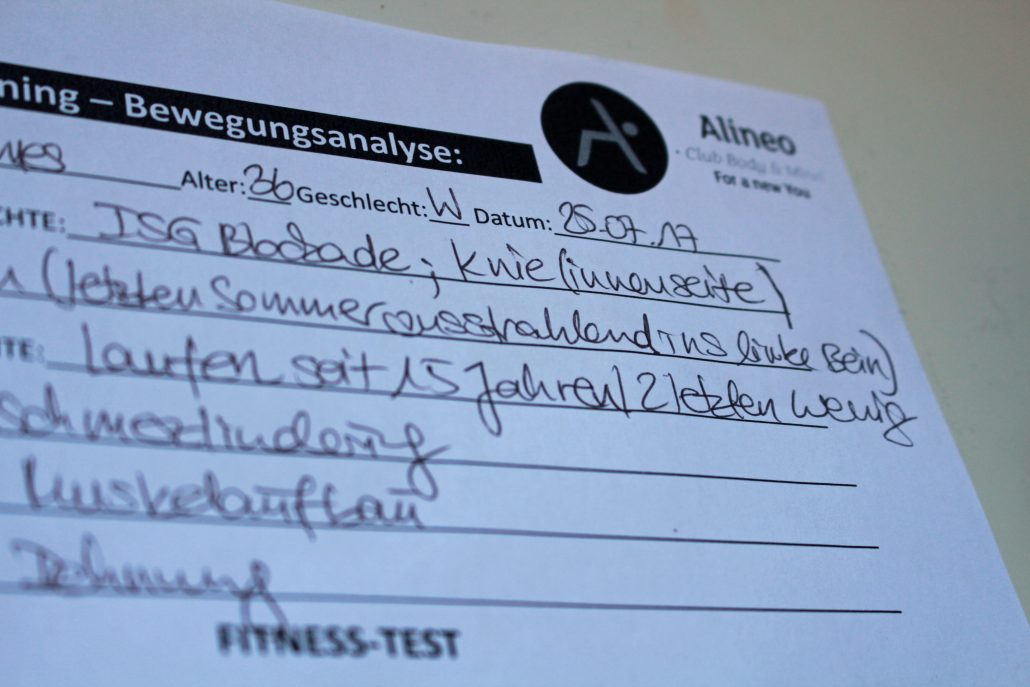 ning – Bewegungsanalyse:
Alineo
Club Body & Mind
For a new You
Alter: 36 Geschlecht: W Datum: 25.07.17
CHTE: ISG Blockade; Knie (innenseite)
(letzten Sommer ausstrahlend ins linke Bein)
TE: Laufen seit 15 Jahren/2 letzten wenig
Schmerzlinderung
Muskelaufbau
Dehnung
FITNESS-TEST